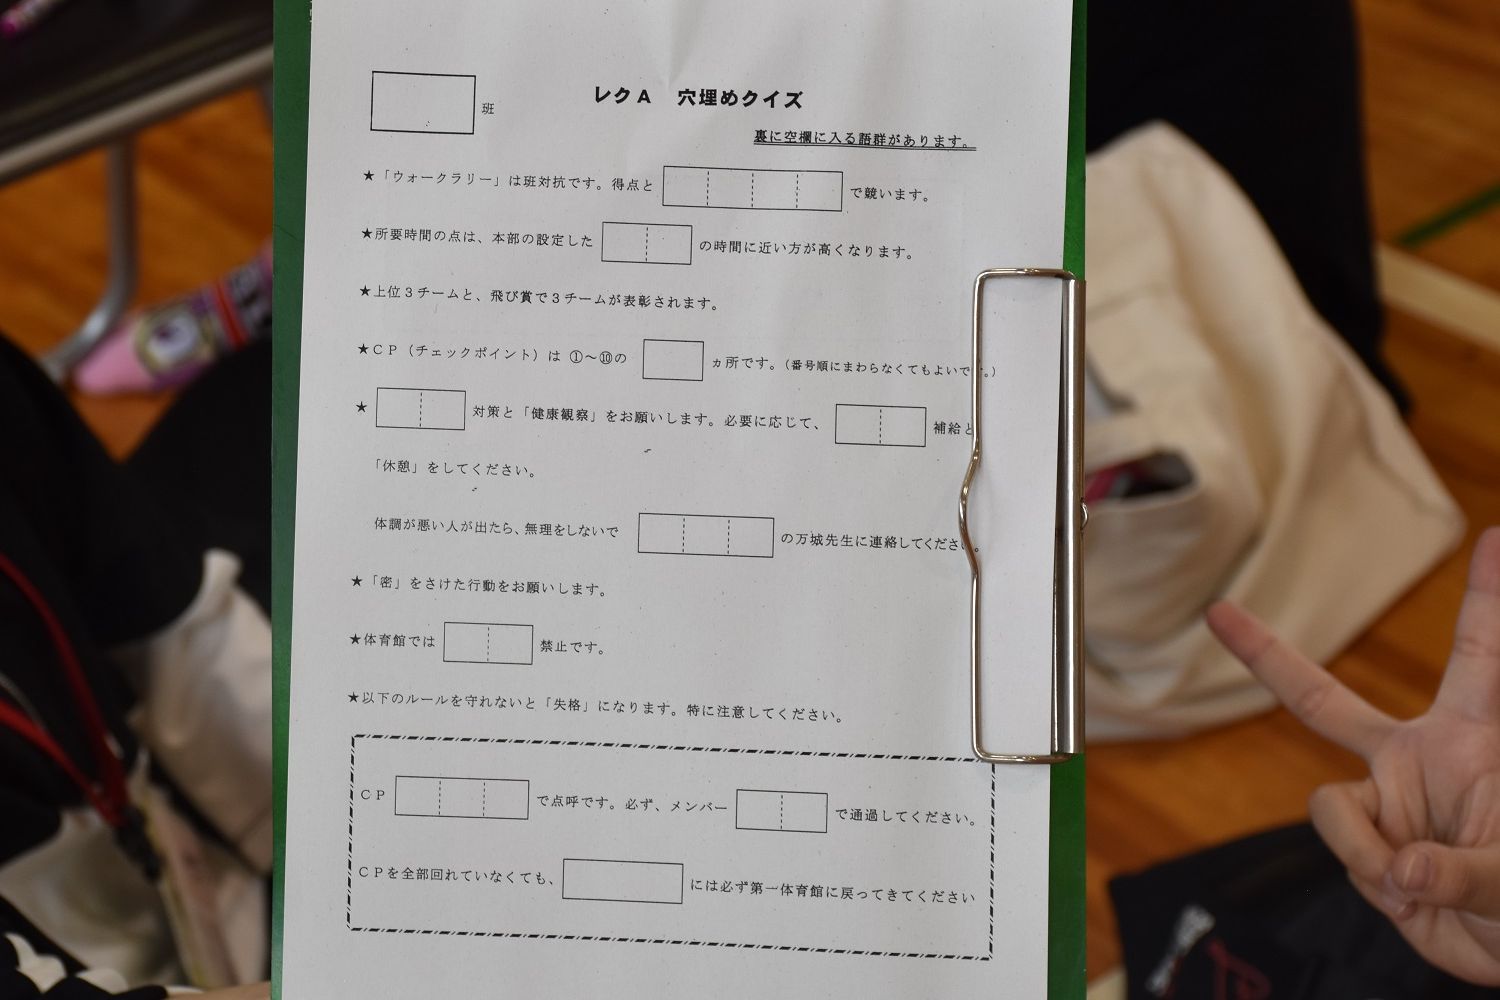 班
レクA　穴埋めクイズ
裏に空欄に入る語群があります。
★「ウォークラリー」は班対抗です。得点と　　　　で競います。
★所要時間の点は、本部の設定した　　　　の時間に近い方が高くなります。
★上位３チームと、飛び賞で３チームが表彰されます。
★ＣＰ（チェックポイント）は ①～⑩の　　　　ヵ所です。（番号順にまわらなくてもよいです。）
★　　　　対策と「健康観察」をお願いします。必要に応じて、　　　　補給と
「休憩」をしてください。
体調が悪い人が出たら、無理をしないで　　　　の万城先生に連絡してください。
★「密」をさけた行動をお願いします。
★体育館では　　　　禁止です。
★以下のルールを守れないと「失格」になります。特に注意してください。
ＣＰ　　　　で点呼です。必ず、メンバー　　　　で通過してください。
ＣＰを全部回れていなくても、　　　　には必ず第一体育館に戻ってきてください